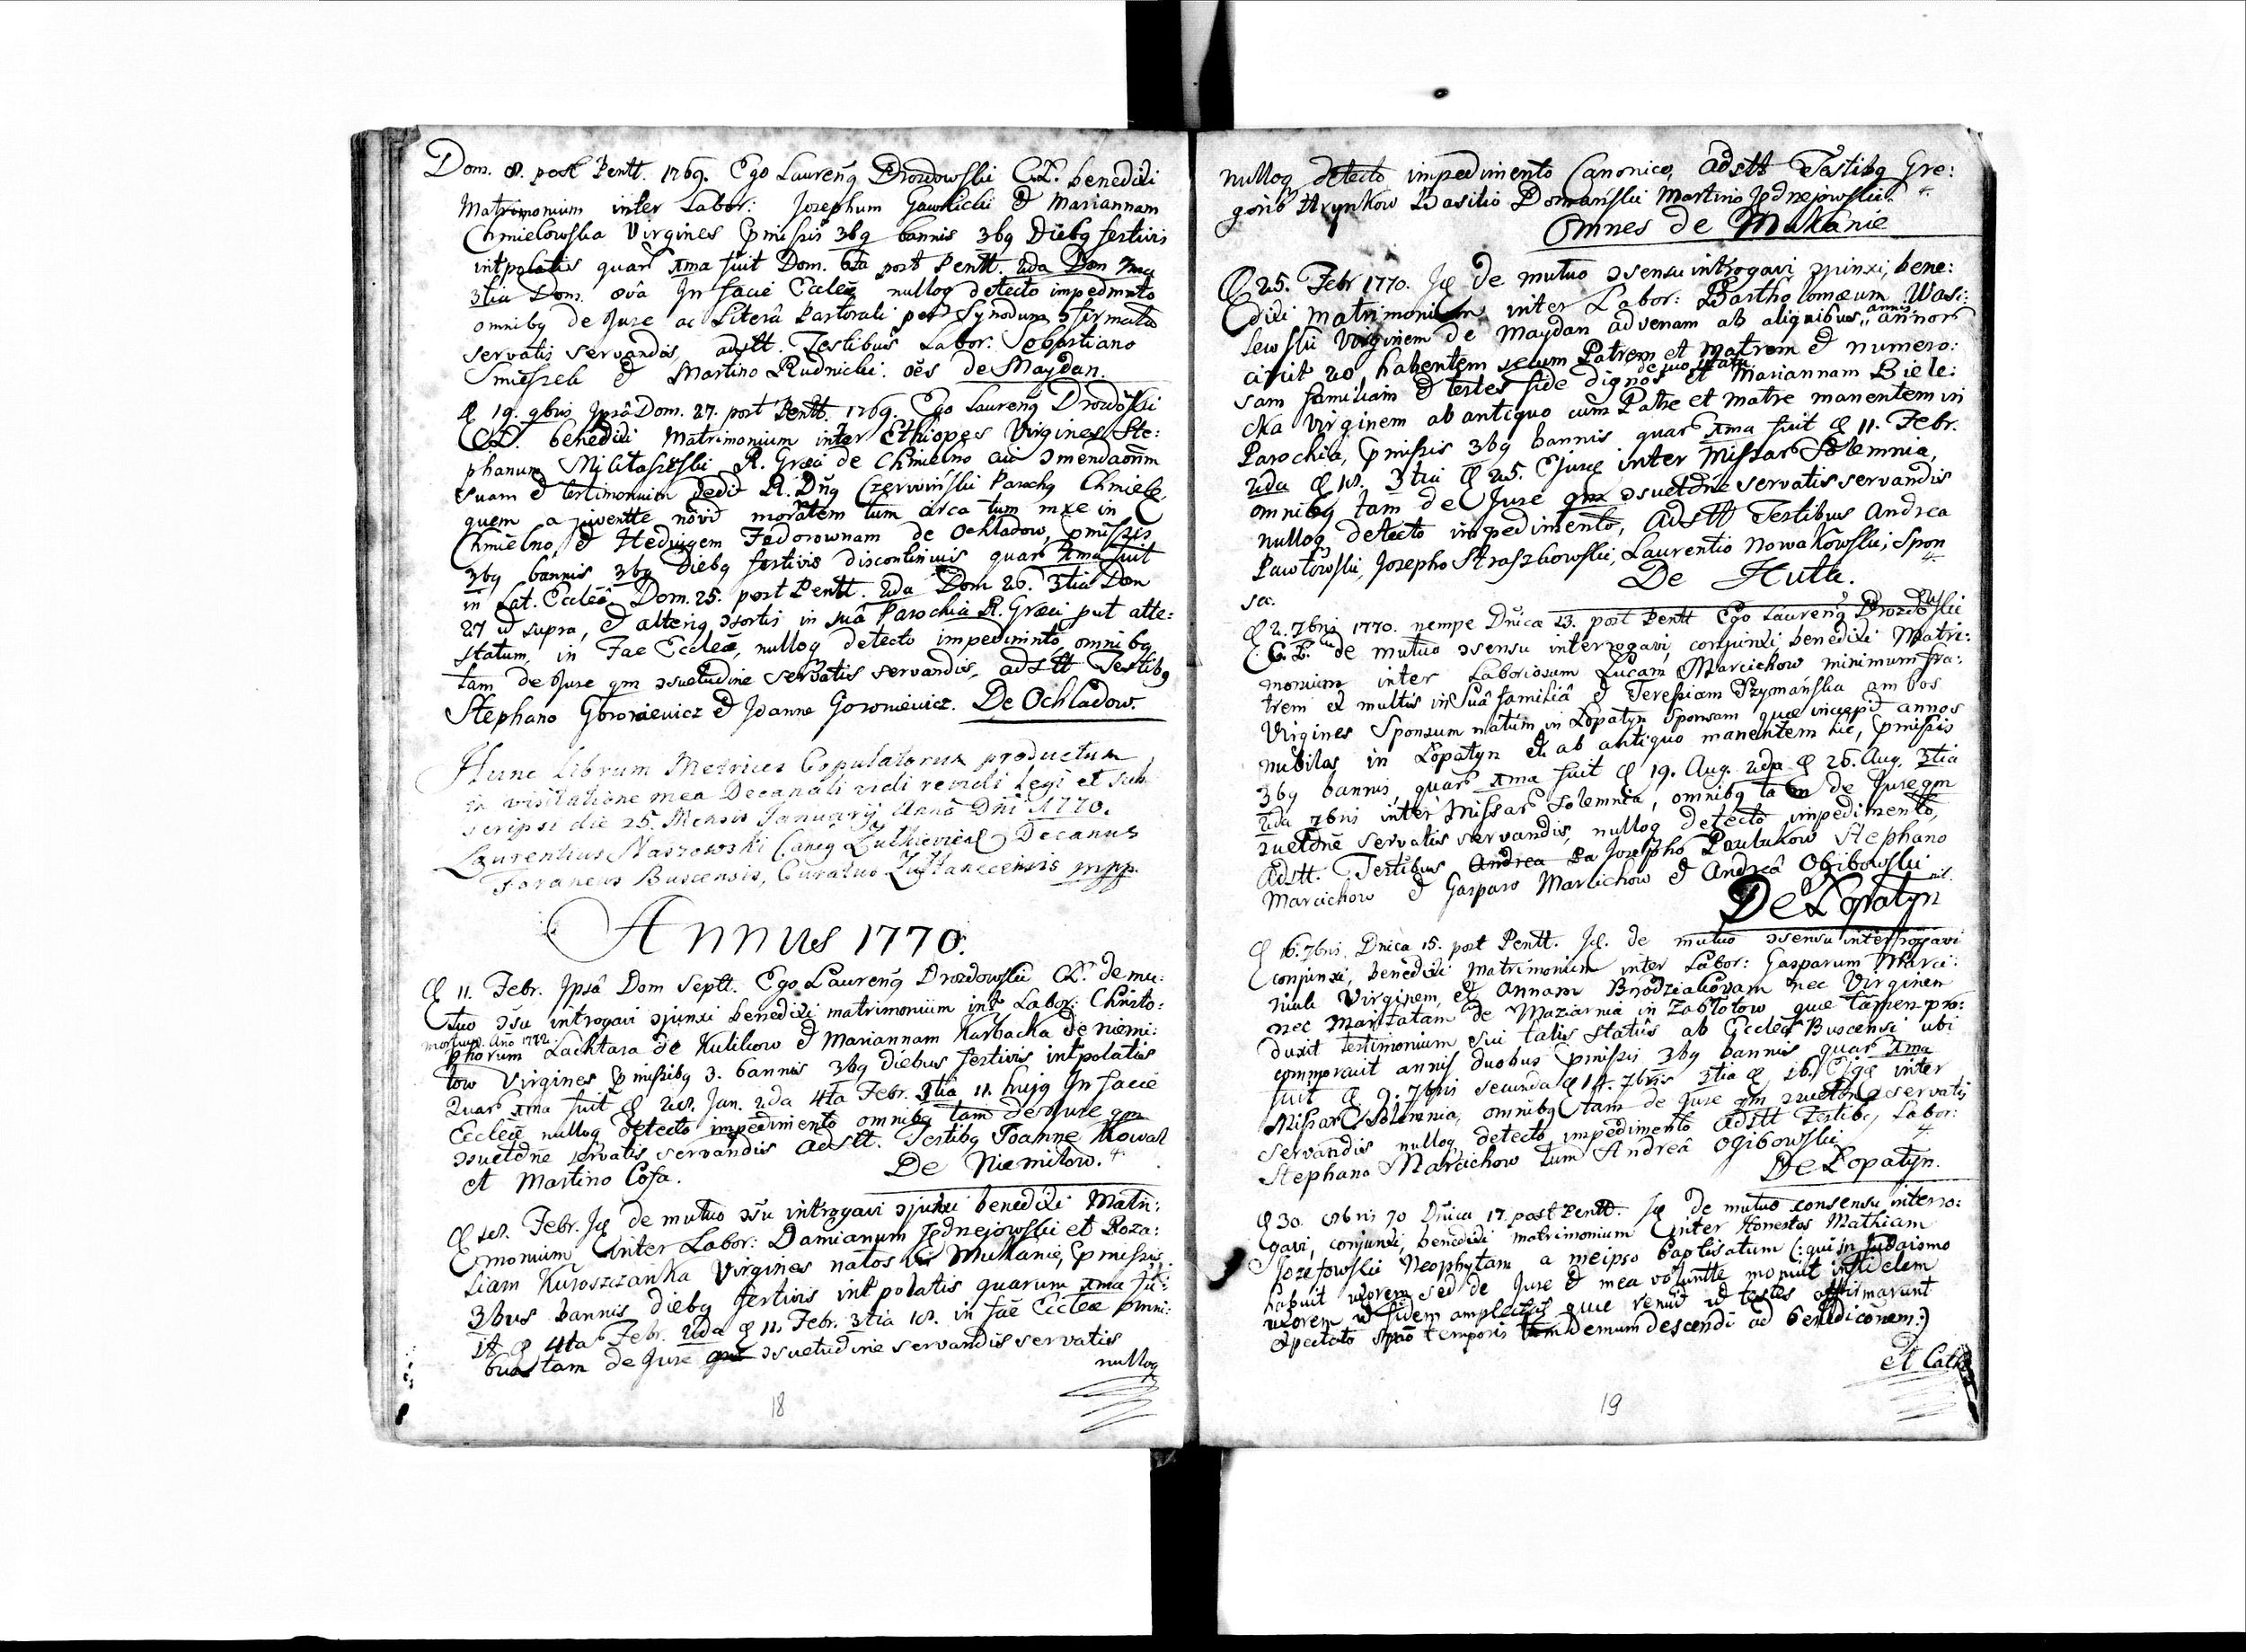 Dom. 8. post Pentt. 1769. Ego Laureñ Drozdowski C.L. benedixi
Matrimonium inter Labor: Josephum Gawlicki et Mariannam
Chmielowska Virgines pmissis 3bq bannis 3bq Diebq festivis
intpolatis quar 1ma fuit Dom. 6ta post Pentt. 2da Dom 7ma
3tia Dom. 8va In facie Eccleæ nulloq detecto impedimnto
omnibq de Jure ac Literâ Pastorali per Synodum Ɔfirmata
servatis servandis, adstt. Testibus Labor: Sebastiano
et Martino Rudnicki. oēs de Maydan.
19. 9bris Ipsâ Dom. 27. post Pentt. 1769. Ego Laureñ
C.L. benedixi Matrimonium inter Ethiopes Virgines Ste:
phanum R. Græci de Chmielno cui Ɔmendaonm
suam et testimonium dedit R. Dnq Czerwiński Parochq Chmiele.
quem a juventte novit moratem tum circa tum in
Chmielno, et Hedvigem Fedorownam de Ochladow, pmissis
3bq bannis 3bq diebq festivis discontinuis quar 1ma fuit
in Lat. Eccleâ Dom. 25. post Pentt. 2da Dom 26. 3tia Dom
27 ut supra, et alteriq Ɔsortis in suâ Parochia R. Græci put atte:
statum, in Fae Eccleæ, nulloq detecto impedimnto, omnibq
tam de Jure qm Ɔsuetudine servatis servandis, adstt Testibq
Stephano et Joanne Goroniewicz. De Ochladow.
Hunc Librum Metrices Copulatorum productum
in visitatione mea Decanali vidi revidi legi et sub
scripsi die 25. Mensis Januarij Anno Dni 1770.
Laurentius Naszowski Decanus
Foraneus Buscensis, Curatus mpp.
Annus 1770.
11. Febr. Ipsâ Dom Septt. Ego Laureñ Drozdowski C.L. de mu:
tuo Ɔsu introgavi Ɔjunxi benedixi matrimonium int Labor: Christo:
mortuus Año 1772.
phorum Lachtara de Kulikow et Mariannam Karbacka de niemi:
low Virgines pmissibq 3. bannis 3bq diebus festivis intpolatis
Quar 1ma fuit 28. Jan. 2da 4ta Febr. 3tia 11. hujq In facie
Eccleæ nulloq detecto impedimento omnibq tam de Jure qm
Ɔsuetdne servatis servandis adstt. Testibq Joanne Kowal
et Martino Cosa. De Niemilow. 4.
18. Febr. Iq de mutuo Ɔsu introgavi Ɔjunxi benedixi Matri:
monium inter Labor: Damianum Jędnejowski et Roza:
liam Kuroszczanka Virgines natos in Mukanie, pmissis
3bus bannis diebq festivis intpolatis quarum 1ma fu:
it 4ta Febr. 2da 11. Febr. 3tia 18. in fāē Eccleæ omni:
bus tam de Jure qm Ɔsuetudine servandis servatis
nulloq
18
nulloq detecto impedimento Canonico, adstt Testibq Gre:
gorio Hrynkow Basilio Domański Martino Jędnejowski. 4.
Omnes de Mukanie
25. Febr 1770. Iq de mutuo Ɔsensu introgavi Ɔjunxi, bene:
dixi matrimonium inter Labor: Bartholomæum Wasi:
lewski Virginem de Maydan advenam ab aliquibus annis annor
circit 20 habentem secum Patrem et Matrem et numero:
sam familiam et testes fide dignos de suo statu et Mariannam Biele:
cka Virginem ab antiquo cum Patre et matre manentem in
Parochia, pmissis 3bq bannis quar 1ma fuit 11. Febr.
2da 18. 3tia 25. inter Missar Solemnia,
omnibq tam de Jure qm Ɔsuetdne servatis servandis
nulloq detecto impedimento, adstt Testibus Andrea
Pawłowski, Josepho Straszkowski, Laurentio Nowakowski, Spon
sæ. De Huta. 4.
2. 7bris 1770. nempe Dnica 13. post Pentt Ego Laureñ Drozdowski
C.L. de mutuo Ɔsensu interrogavi, conjunxi, benedixi Matri:
monium inter Laboriosum Lucam Marcichow minimum fra:
trem ex multis in suâ familiâ et Teressiam Szymańska ambos
Virgines Sponsum natum in Lopatyn Sponsam quæ incepit annos
nubilas in Lopatyn et ab antiquo manentem hic, pmissis
3bq bannis, quar 1ma fuit 19. Aug. 2da 26. Aug. 3tia
2da 7bris inter Missar Solemnia, omnibq tam de Jure qm
Ɔsuetdne servatis servandis, nulloq detecto impedimento,
Adstt. Testibus Andrea Pa Josepho Pawlukow Stephano
Marcichow et Gasparo Marcichow et Andreâ Ogibowski
De Lopatyn
16. 7bris Dnica 15. post Pentt. Iq. de mutuo Ɔsensu interrogavi
conjunxi, benedixi matrimonium inter Labor: Gasparum Marci:
niuk Virginem, et Annam Brodziakovam nec Virginem
nec Maritatam de Maziarnia in Zabłotow quæ tamen pro:
duxit testimonium sui talis statûs ab Eccleâ Buscensi ubi
commoravit annis duobus pmissis 3bq bannis quar 1ma
fuit 9. 7bris secunda 14. 7bris 3tia 16. inter
Missar Solemnia, omnibq tam de Jure qm Ɔsuetdne servatis
servandis nulloq detecto impedimento adstt Testibq Labor:
Stephano Marcichow tum Andreâ Ogibowski 4.
De Lopatyn.
30. 7bris 70 Dnica 17. post Pentt. Iq de mutuo consensu interro:
gavi, conjunxi, benedixi matrimonium inter Honestos Mathiam
Jozefowski Neophytam a meipso baptisatum (: qui in Judaismo
habuit uxorem sed de Jure et mea voluntte monuit infidelem
uxorem ut fidem amplectat quæ renuit ut testes affirmarunt
expectato spāō temporis demum descendi ad benedictionem:)
et Cath
19